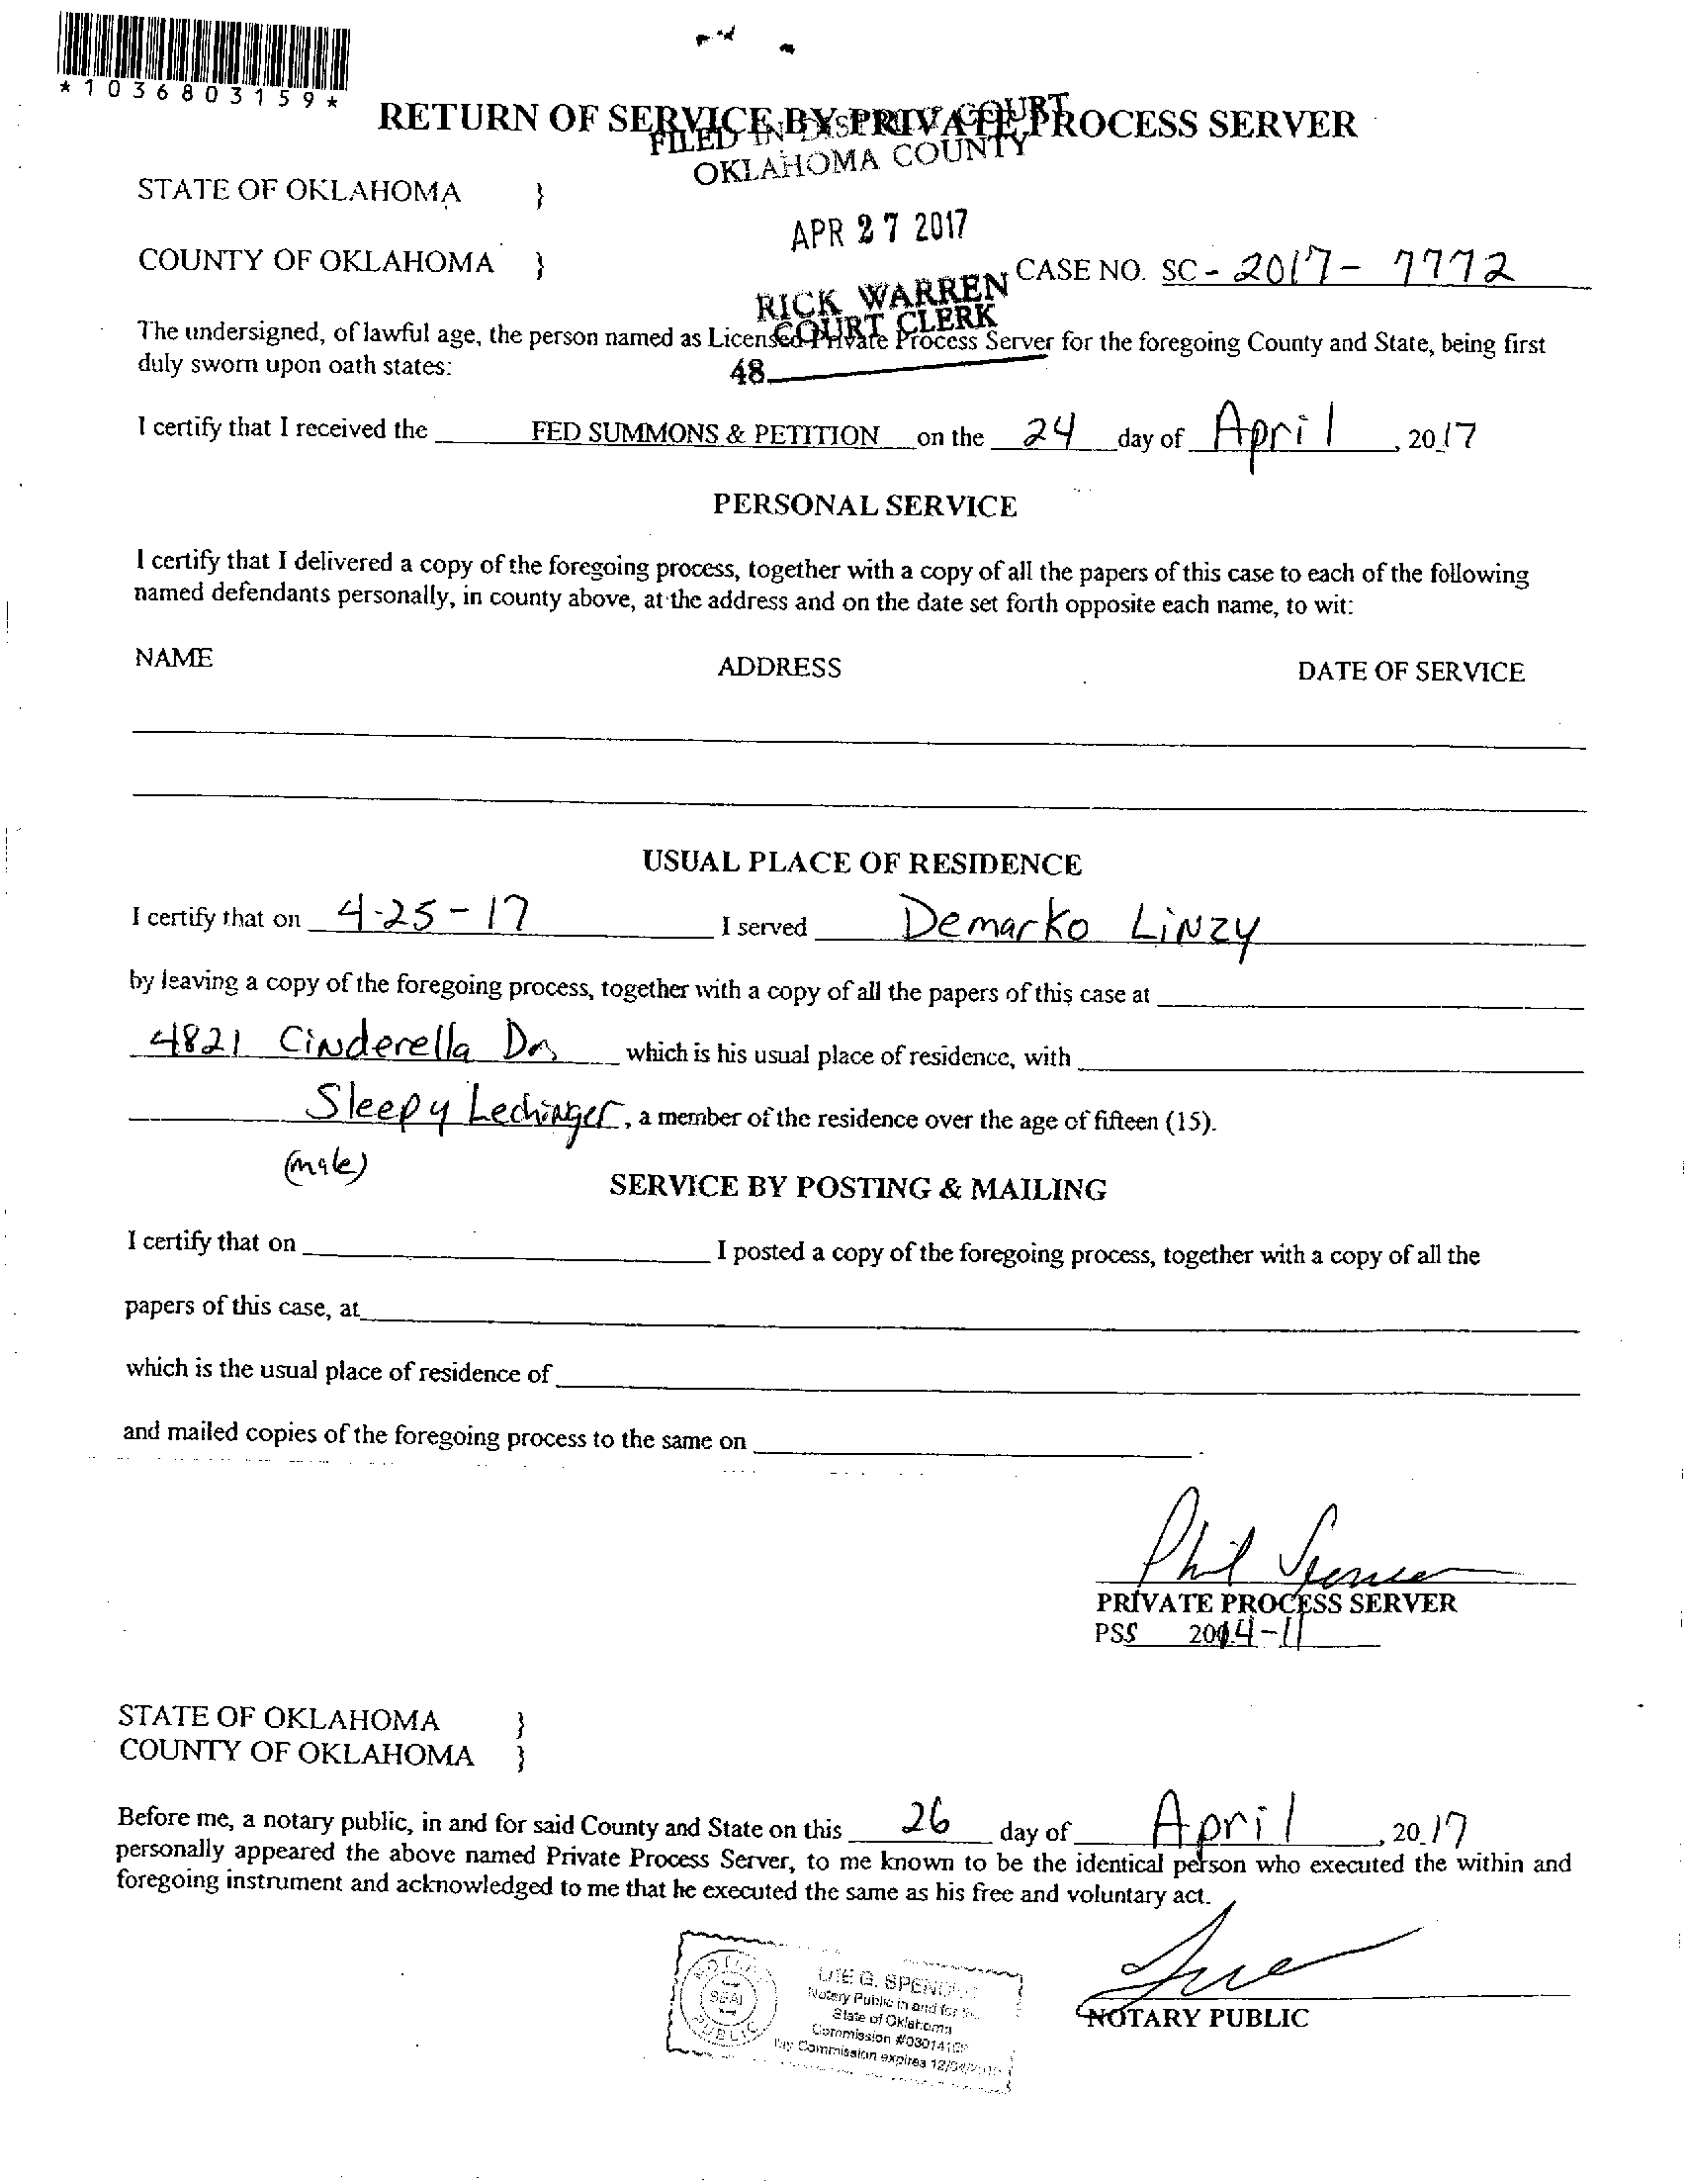 *1036803159*
RETURN OF SERVICE BY PRIVATE PROCESS SERVER
FILED IN DISTRICT COURT
OKLAHOMA COUNTY
STATE OF OKLAHOMA }
APR 27 2017
COUNTY OF OKLAHOMA }
CASE NO. SC - 2017 - 7772
RICK WARREN
COURT CLERK
The undersigned, of lawful age, the person named as Licensed Private Process Server for the foregoing County and State, being first
duly sworn upon oath states:
48
I certify that I received the FED SUMMONS & PETITION on the 24 day of April, 2017
PERSONAL SERVICE
I certify that I delivered a copy of the foregoing process, together with a copy of all the papers of this case to each of the following
named defendants personally, in county above, at the address and on the date set forth opposite each name, to wit:
NAME ADDRESS DATE OF SERVICE
USUAL PLACE OF RESIDENCE
I certify that on 4-25-17 I served Demarko Linzy
by leaving a copy of the foregoing process, together with a copy of all the papers of this case at
4821 Cinderella Dr. which is his usual place of residence, with
Sleepy Lechinger, a member of the residence over the age of fifteen (15).
(male)
SERVICE BY POSTING & MAILING
I certify that on I posted a copy of the foregoing process, together with a copy of all the
papers of this case, at
which is the usual place of residence of
and mailed copies of the foregoing process to the same on .
Phil Spencer
PRIVATE PROCESS SERVER
PSS 2014-11
STATE OF OKLAHOMA }
COUNTY OF OKLAHOMA }
Before me, a notary public, in and for said County and State on this 26 day of April, 2017
personally appeared the above named Private Process Server, to me known to be the identical person who executed the within and
foregoing instrument and acknowledged to me that he executed the same as his free and voluntary act.
NOTARY PUBLIC
SEAL
G.
Notary Public in and for
State of Oklahoma
Commission
My Commission expires
NOTARY PUBLIC